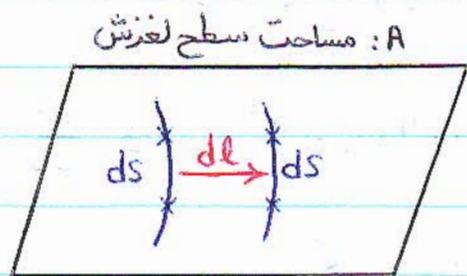 A: مساحت سطح لغزش
ds dl ds